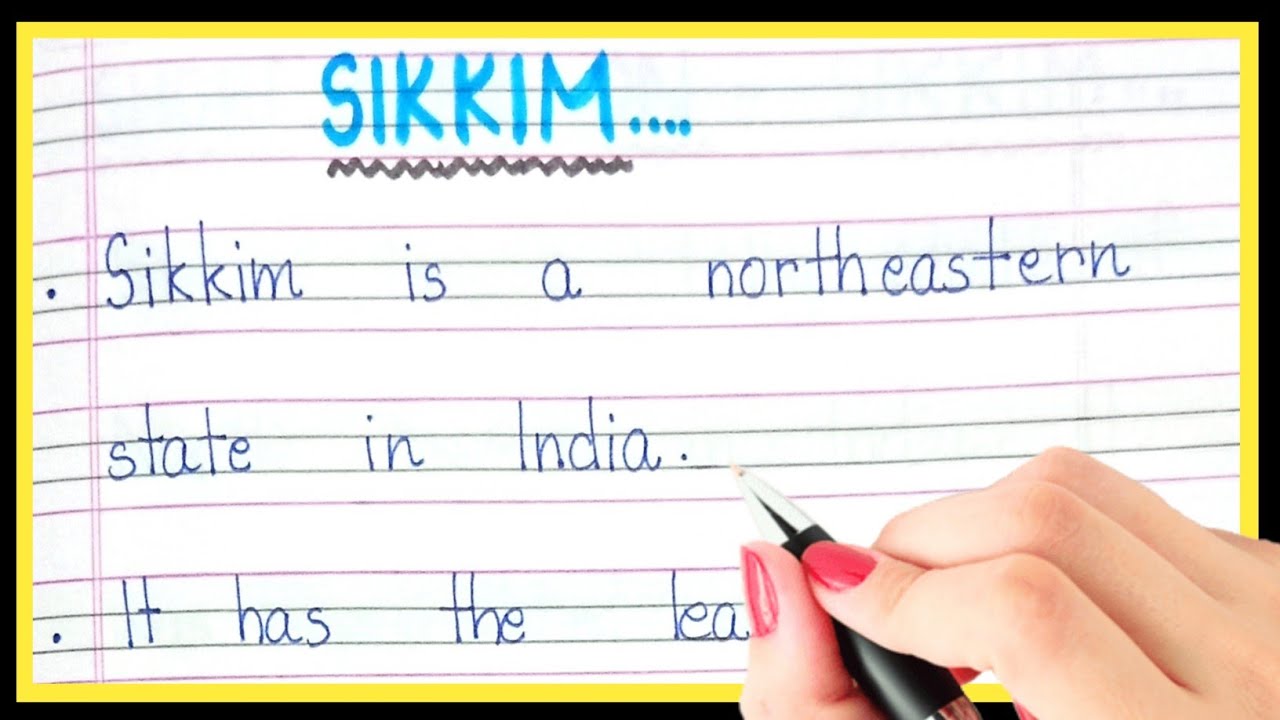 SIKKIM....
. Sikkim is a northeastern
state in India.
. It has the